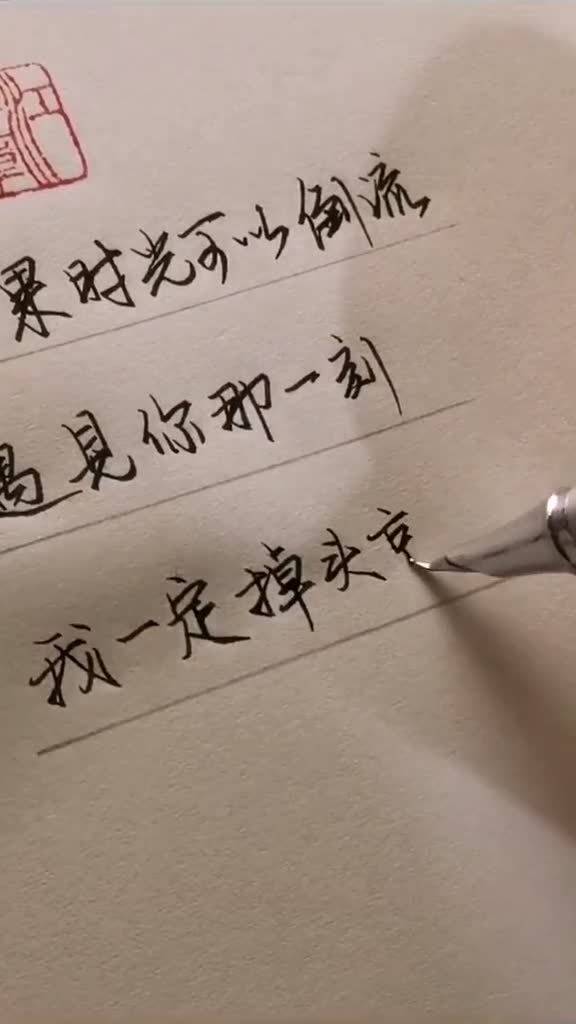 果时光可以倒流
遇见你那一刻
我一定掉头